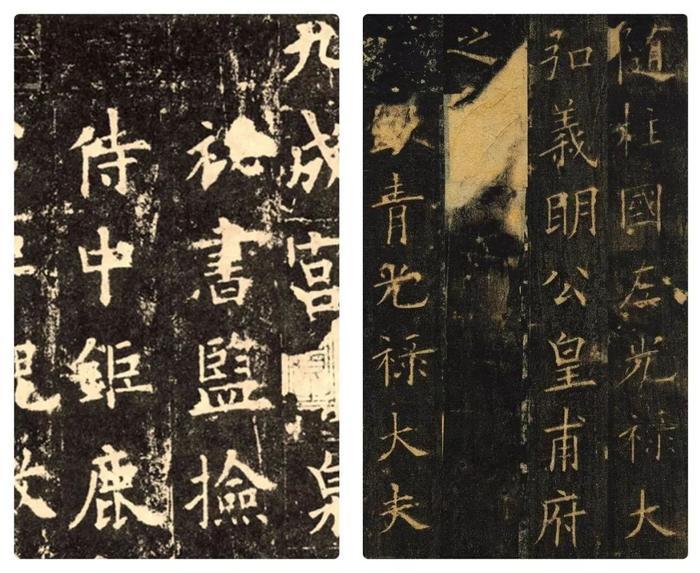 九成宮泉
祕書監撿
侍中鉅鹿
隨柱國左光禄大
弘義明公皇甫府
之
青光禄大夫